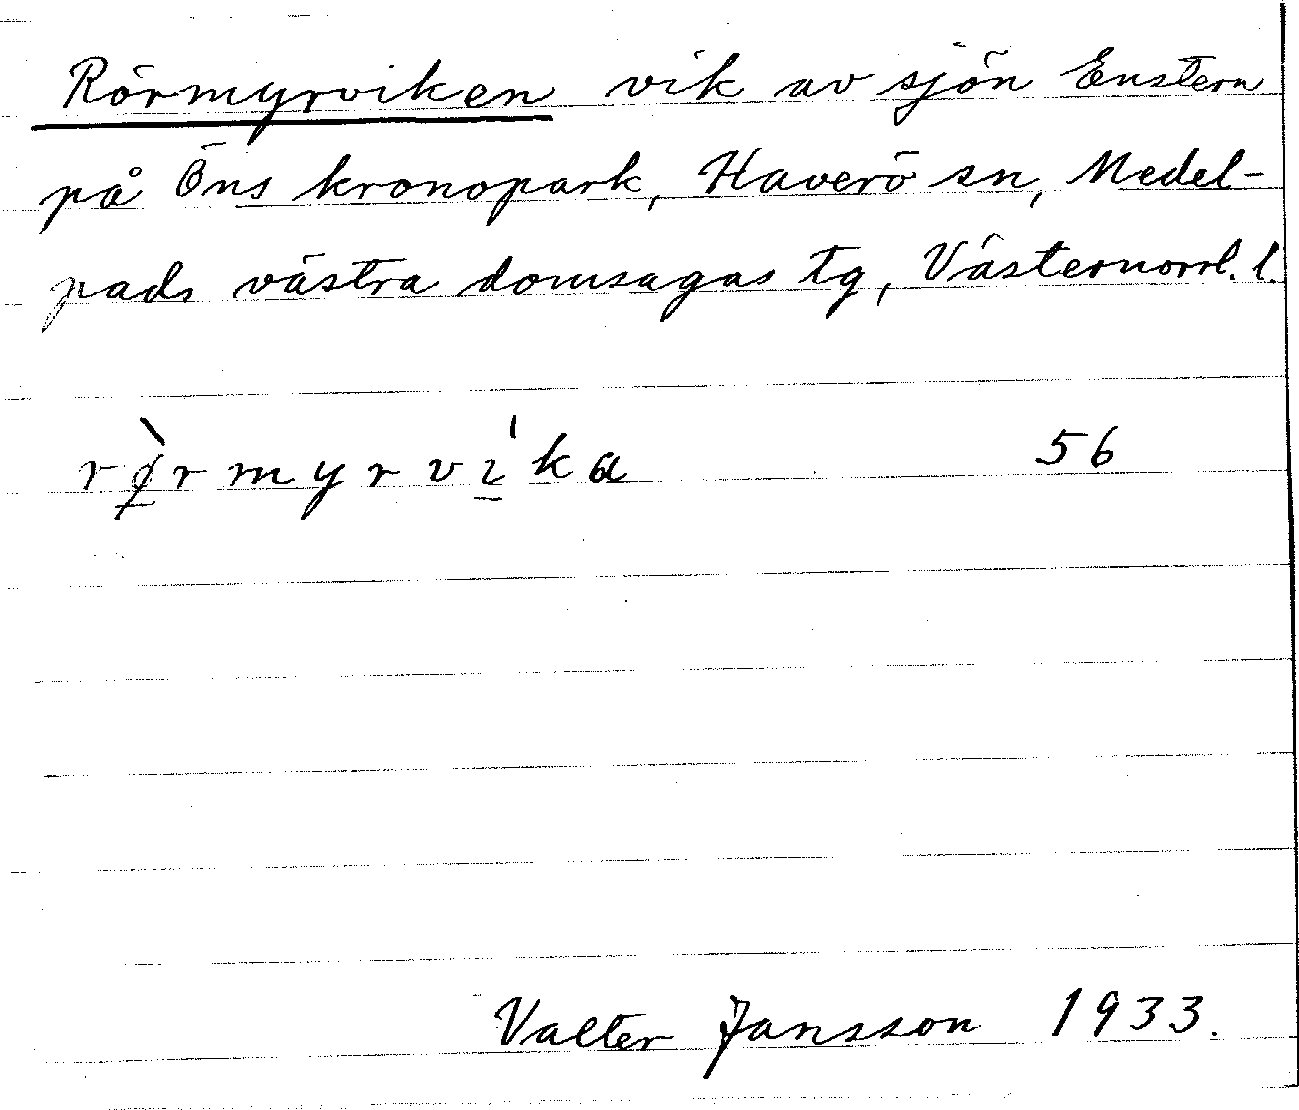 Rörmyrviken vik av sjön Enstern
på Öns kronopark, Haverö sn, Medel-
pads västra domsagas tg, Västernorrl. l.
rø̱̀rmyrví̱ka 56
Valter Jansson 1933.